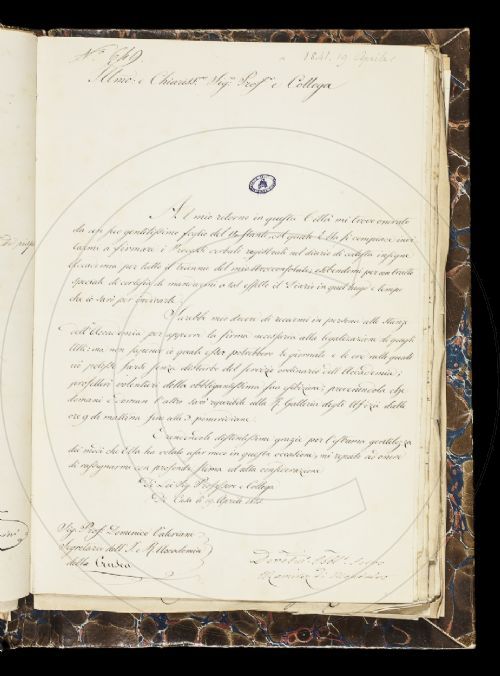 N.° 649.
1841. 19 Aprile
Illmo: e Chiaress.mo Sig.re Prof.re e Collega
Al mio ritorno in questa Città mi trovo onorato
da un suo gentilissimo foglio del
a firmare i Processi verbali registrati nel diario di codesta insigne
Accademia per tutto il triennio del mio Arciconsolato, esibendomi per un tratto
speciale di cortesia di mandarmi a tal effetto il Diario in quel luogo e tempo
che io sarò per
Sarebbe mio dovere di recarmi in persona alle Stanze
dell'Accademia per apporre la firma necessaria alla legalizzazione di quegli
Atti; ma non sapendo io quali esser potrebbero le giornate e le ore nelle quali
ciò potesse farsi senza disturbo del servizio ordinario dell'Accademia;
profitterò volentieri della obbligantissima sua esibizione; prevenendola che
domane e doman l'altro sarò reperibile alla R. Galleria degli Uffizi dalle
ore 9 di mattina fino alle 3 pomeridiane.
Rendendole distintissime grazie per l'estrema gentilezza
dei modi che Ella ha voluto usar meco in questa occasione, mi reputo ad onore
di rassegnarmi con profonda stima ed alta considerazione
Di Lei Sig. Professore e Collega
Di Casa li 19 Aprile 1841.
Sig. Prof. Domenico Valeriani
Segretario dell'I. e R. Accademia
della Crusca